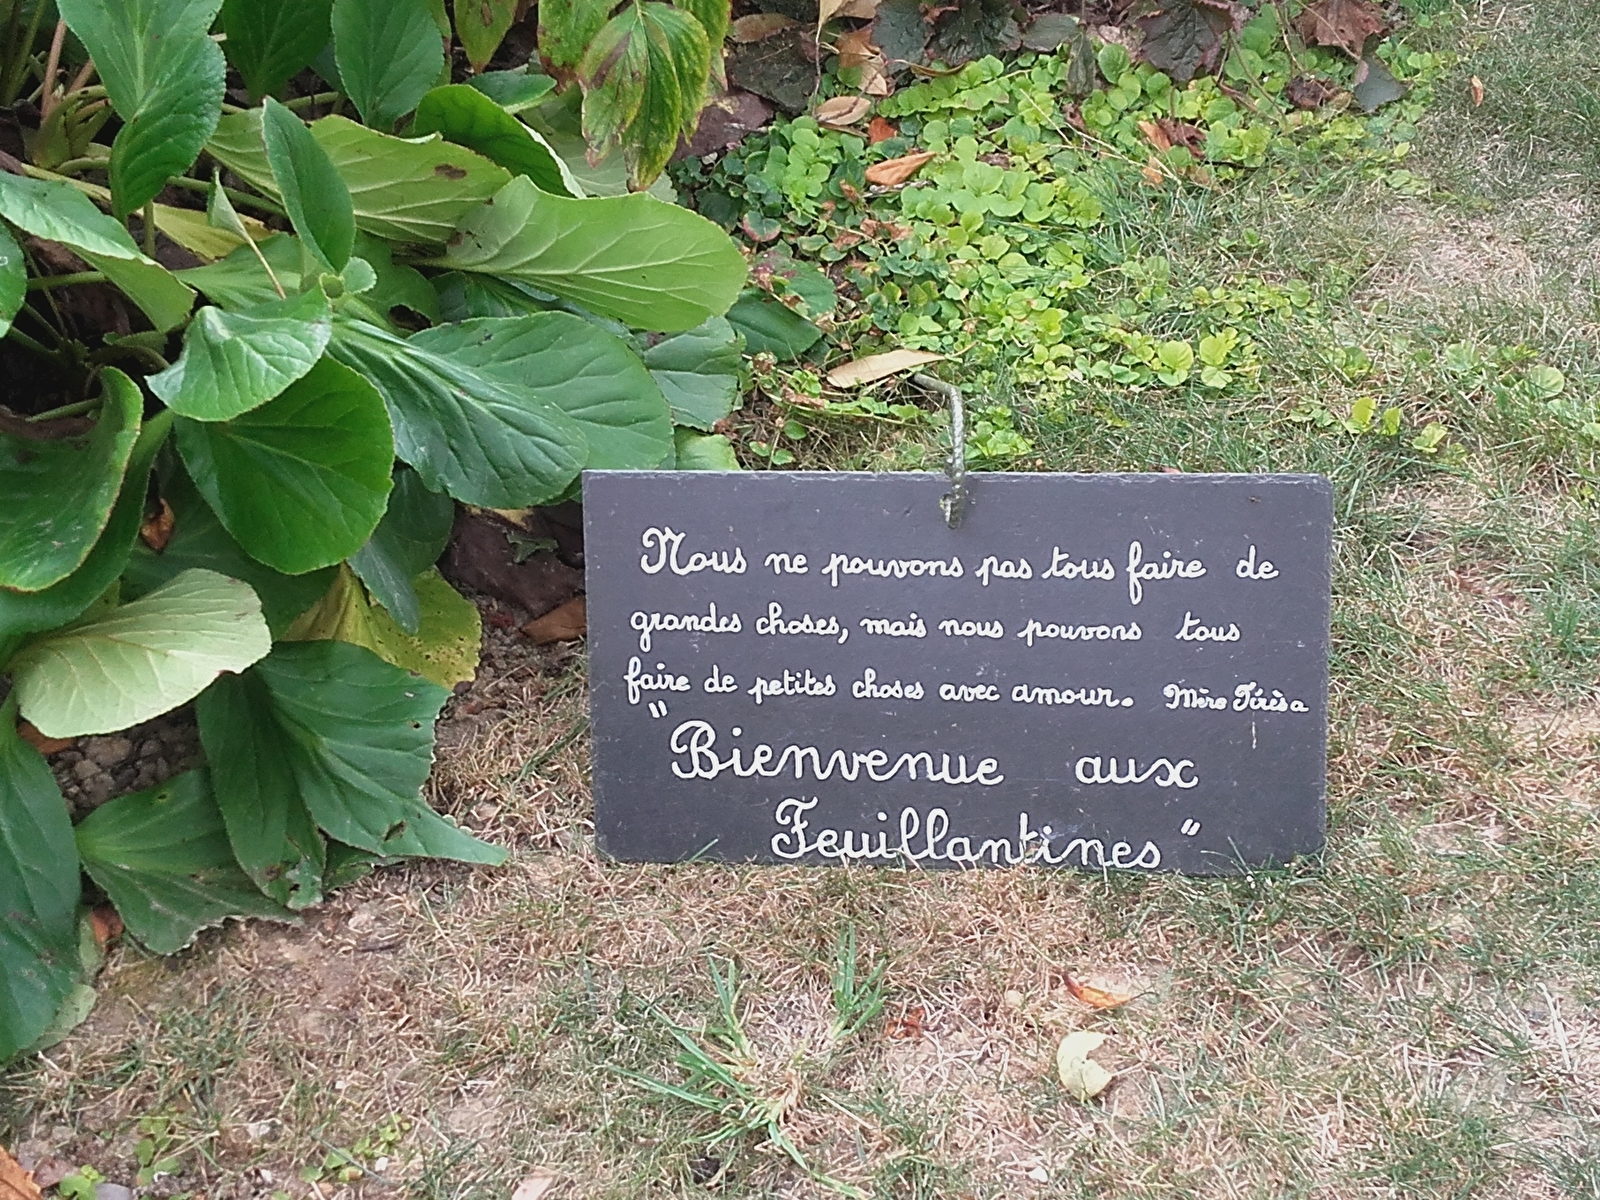 Nous ne pouvons pas tous faire de
grandes choses, mais nous pouvons tous
faire de petites choses avec amour. Mère Térèsa
"Bienvenue aux
Feuillantines"